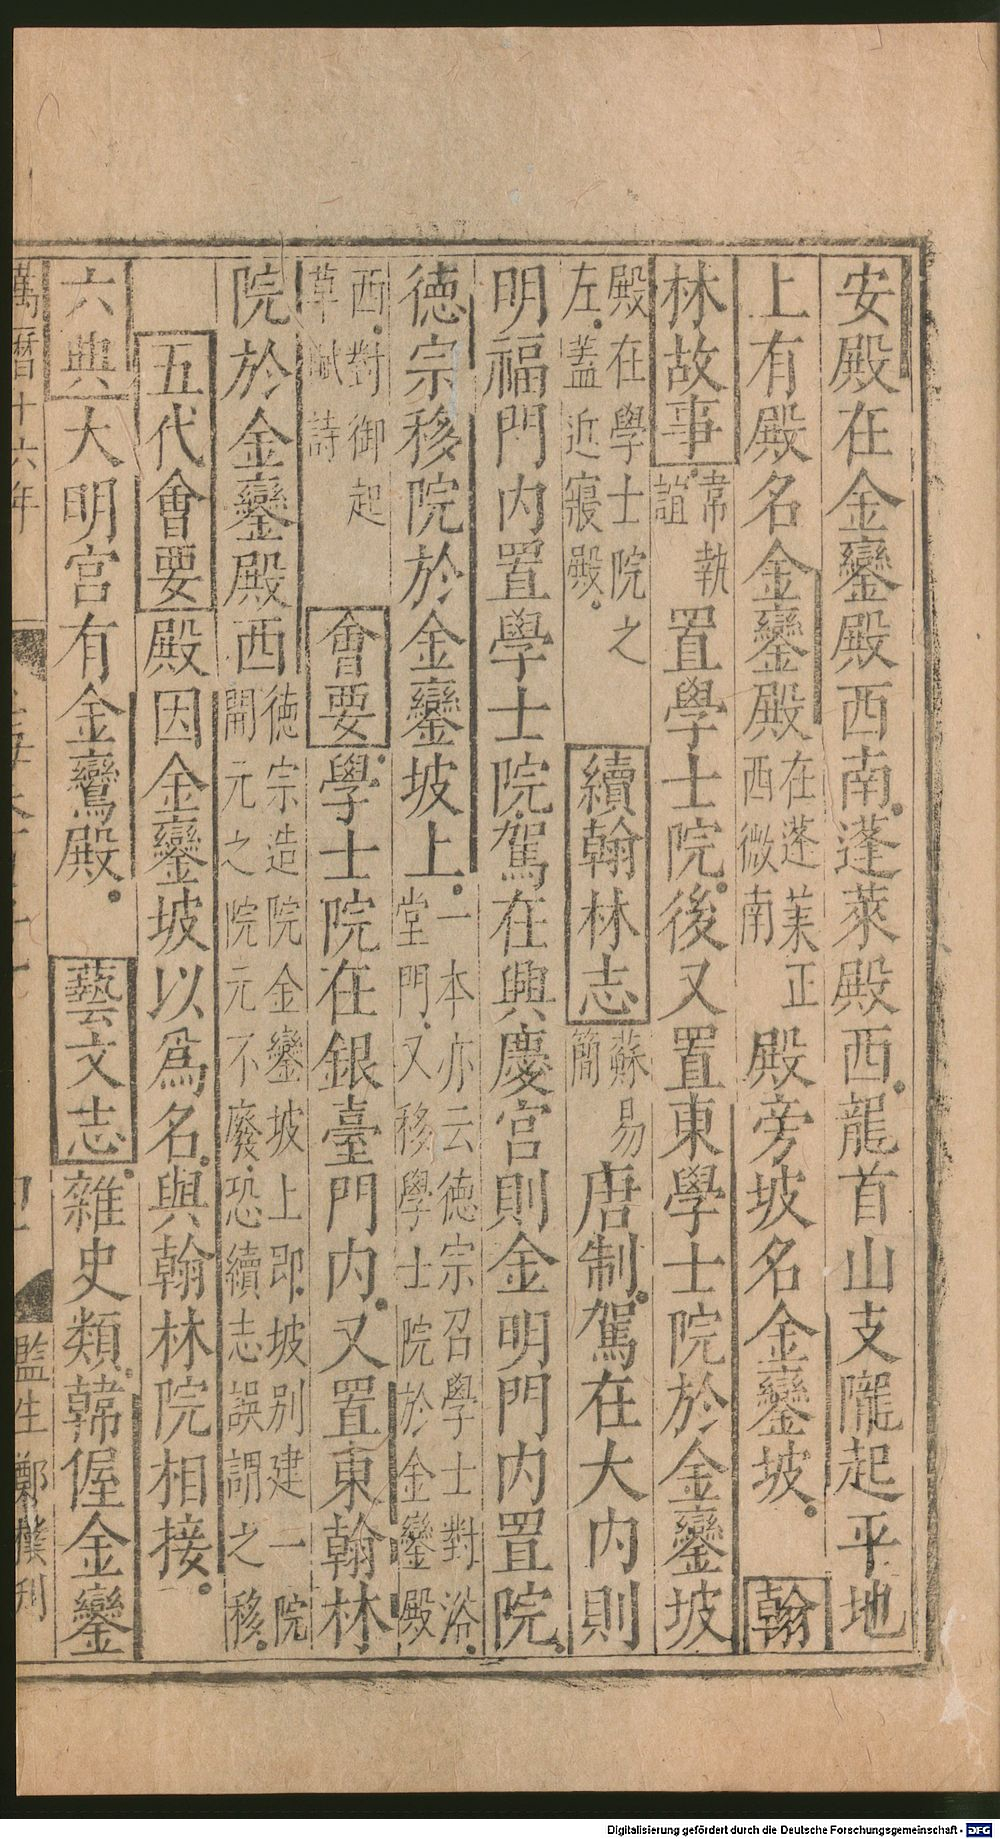 安殿在金鑾殿西南蓬萊殿西龍首山支隴起平地
上有殿名金鑾殿在蓬萊正西微南殿旁坡名金鑾坡翰
林故事韋執誼置學士院後又置東學士院於金鑾坡
殿在學士院之左蓋近寢殿續翰林志蘇易簡唐制駕在大內則
明福門內置學士院駕在興慶宮則金明門內置院
德宗移院於金鑾坡上一本亦云德宗召學士對浴堂門又移學士院於金鑾殿
西對御起草賦詩會要學士院在銀臺門內又置東翰林
院於金鑾殿西德宗造院金鑾坡上即坡別建一院開元之院元不廢恐續志誤謂之移
五代會要殿因金鑾坡以為名與翰林院相接
六典大明宮有金鸞殿藝文志雜史類韓偓金鑾
萬曆十六年
監生鄭樸刊
Digitalisierung gefördert durch die Deutsche Forschungsgemeinschaft - DFG